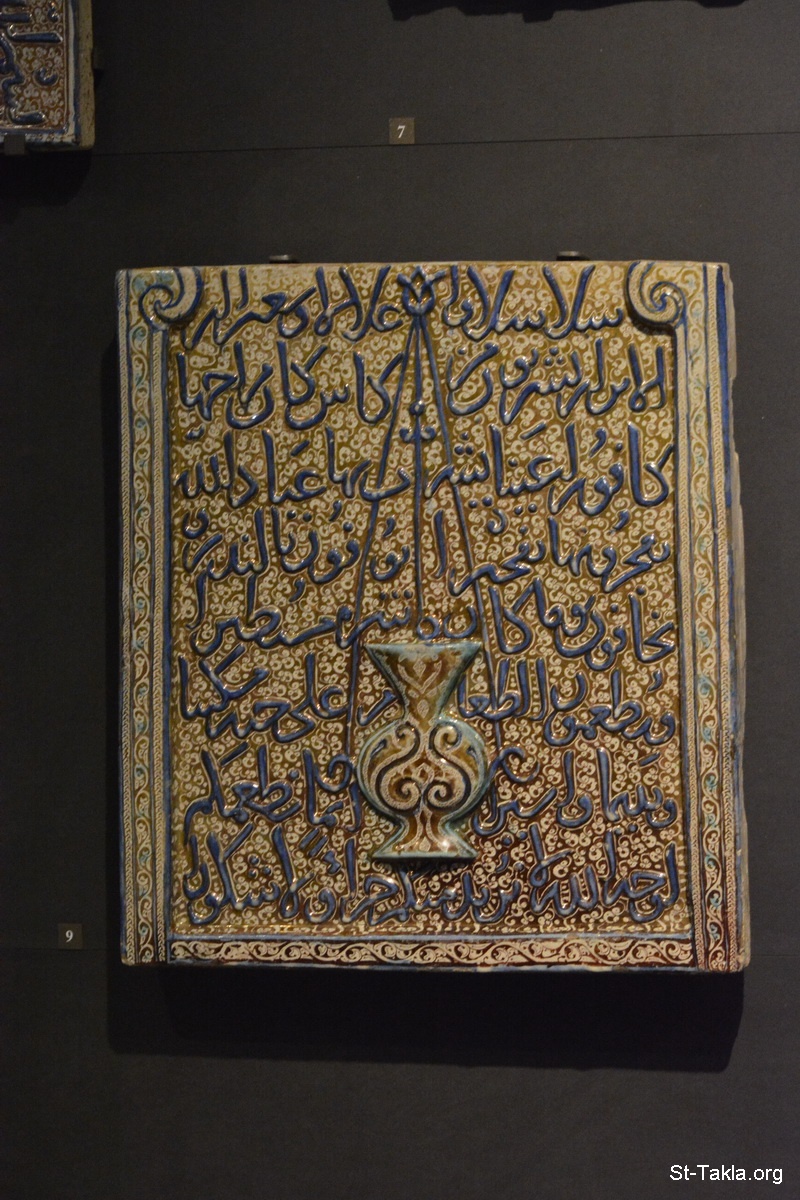 7
سلاسلا واغلالا وسعيرا ان
الابرار يشربون من كاس كان مزاجها
كافورا عينا يشرب بها عباد الله
يفجرونها تفجيرا يوفون بالنذر و
يخافون يوما كان شره مستطيرا
ويطعمون الطعام على حبه مسكينا
ويتيما واسيرا انما نطعمكم
لوجه الله لا نريد منكم جزا ولا شكورا
9
St-Takla.org